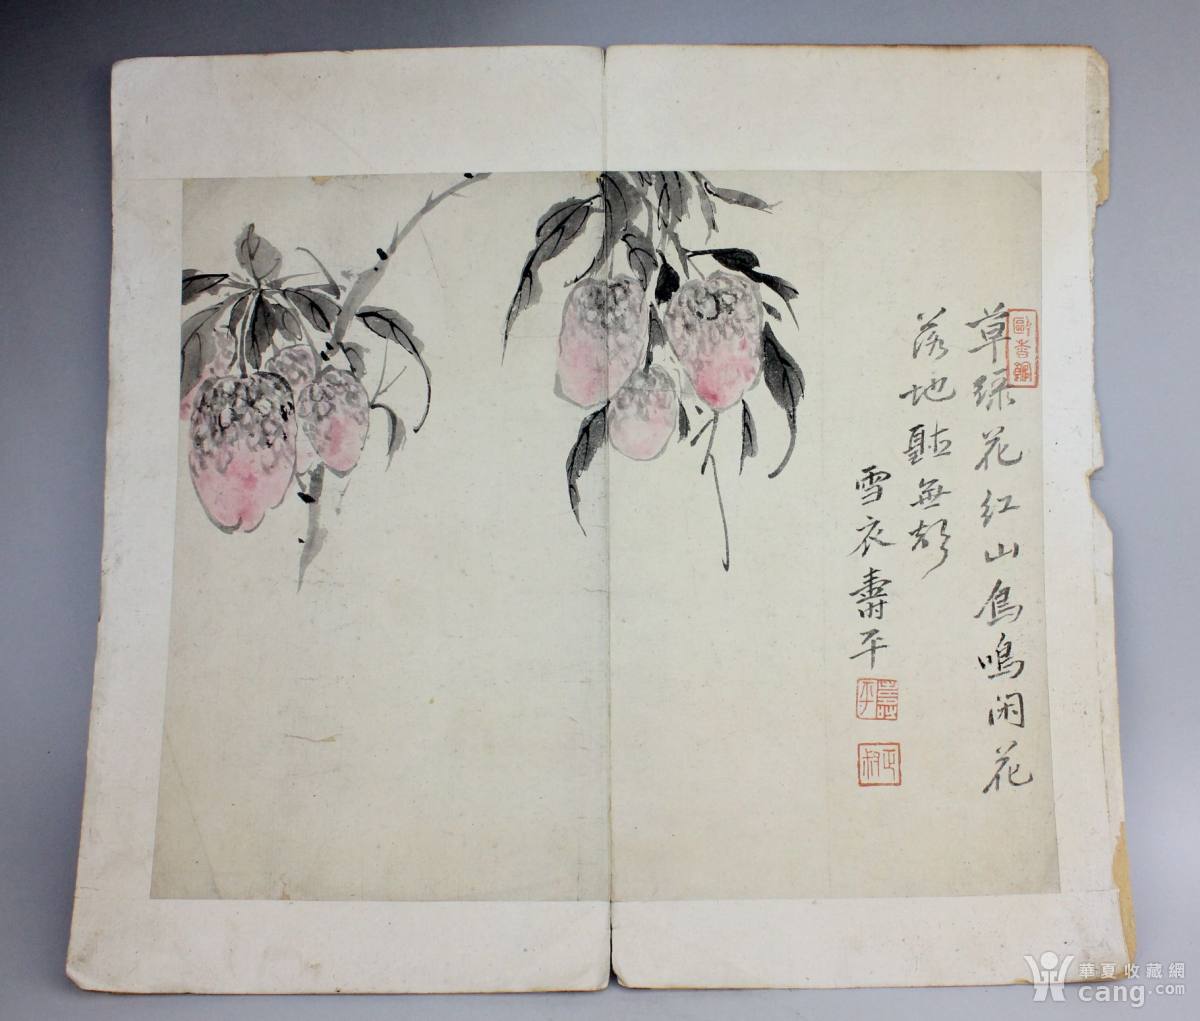 草綠花红山鳥鳴闲花
落地聽無聲
雪衣壽平
甌香館
壽平
正叔
華夏收藏網
cang.com